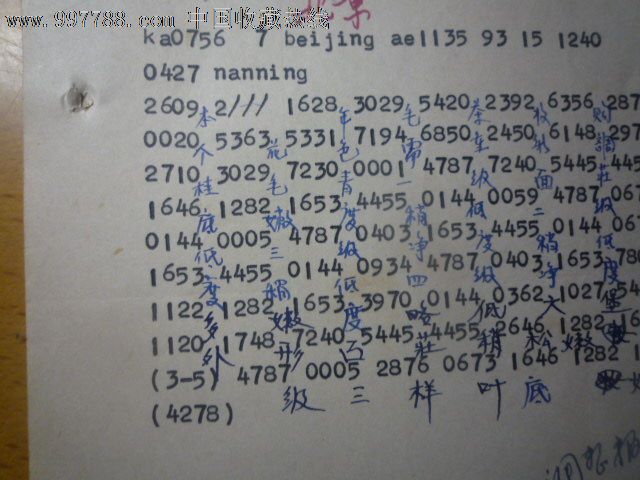 www.997788.com 中国收藏热线
ka0756 7 beijing ae1135 93 15 1240
0427 nanning
2609 2/// 1628 3029 5420 2392 6356 287
本 年 毛 茶 收 购
0020 5363 5331 7194 6850 2450 6148 297
个 花 色 需 车 调
2710 3029 7230 0001 4787 7240 5445 445
桂 毛 青 一 级 面 壮
1646 1282 1653 4455 0144 0059 4787 067
底 嫩 度 稍 低 二 级
0144 0005 4787 0403 1653 4455 0144 067
低 三 级 净 度 稍 低
1653 4455 0144 0934 4787 0403 1653 780
度 稍 低 四 级 净 度
1122 1282 1653 3970 0144 0362 1027 54
外 嫩 度 略 低 六 堡
1120 1748 7240 5445 4455 2646 1282 16
外 形 面 壮 稍 松 嫩
(3-5) 4787 0005 2876 0673 1646 1282 1
级 三 样 叶 底
(4278)